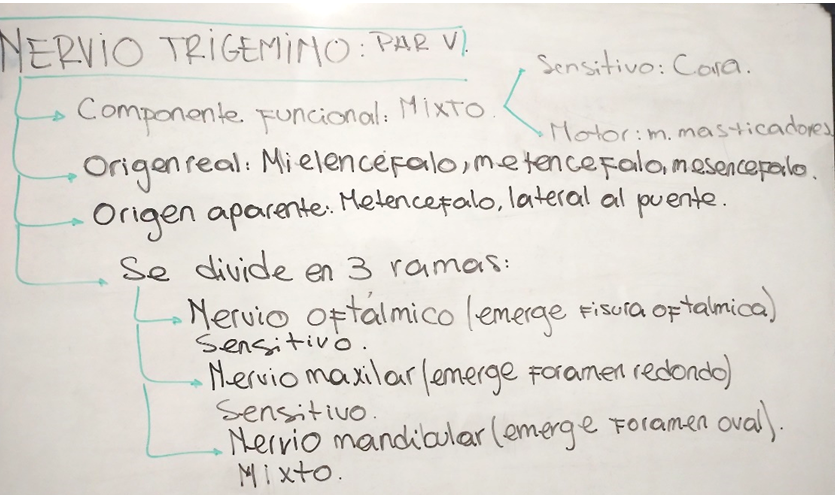 NERVIO TRIGEMINO: PAR V).
Sensitivo: Cara.
Componente Funcional: Mixto.
Motor: m. masticadores
Origen real: Mielencéfalo, metencefalo, mesencefalo.
Origen aparente: Metencefalo, lateral al puente.
Se divide en 3 ramas:
Nervio oftálmico (emerge Fisura oftalmica)
Sensitivo.
Nervio maxilar (emerge Foramen redondo)
Sensitivo.
Nervio mandibular (emerge Foramen oval).
Mixto.